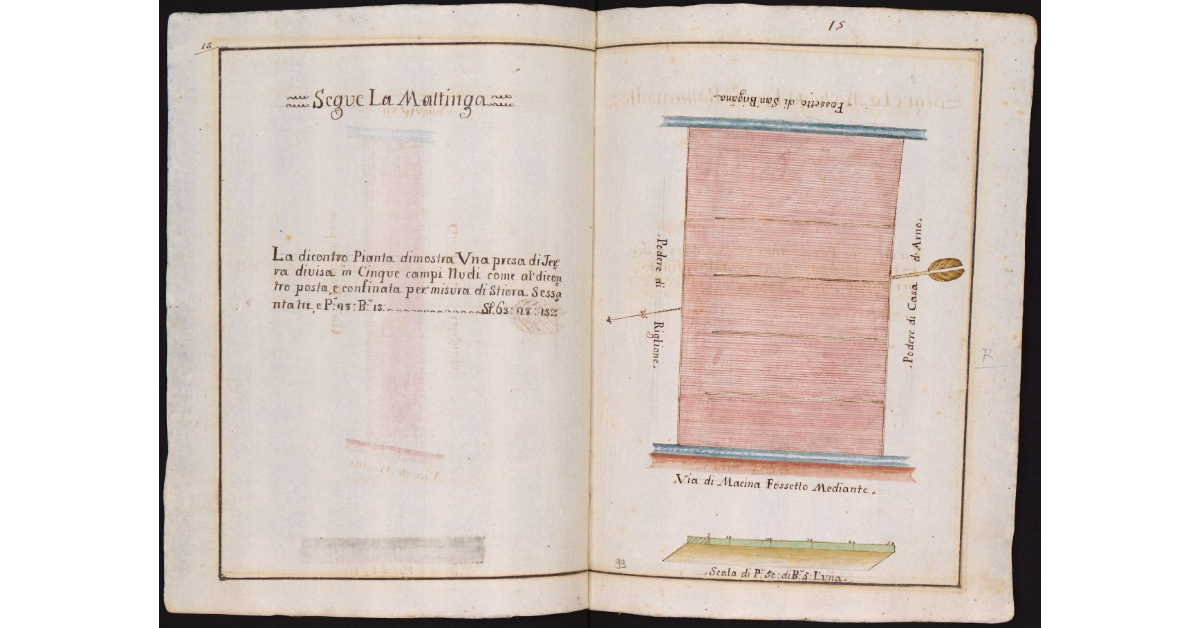 15
Segue La Mattinga
La dicontro Pianta dimostra Vna presa di Ter,
ra divisa in Cinque campi Nudi come al' dicon
tro posta, e confinata per misura di Stiora Sessa
nta tre, e P.e 48: B.e 13. St. 63: 48: 13
15
Fossetto di San Brigana
Podere di Riglione.
Podere di Casa d'Arno.
R
Via di Macina Fossetto Mediante.
99
Scala di P.e 50: di B.a 5: L'una.